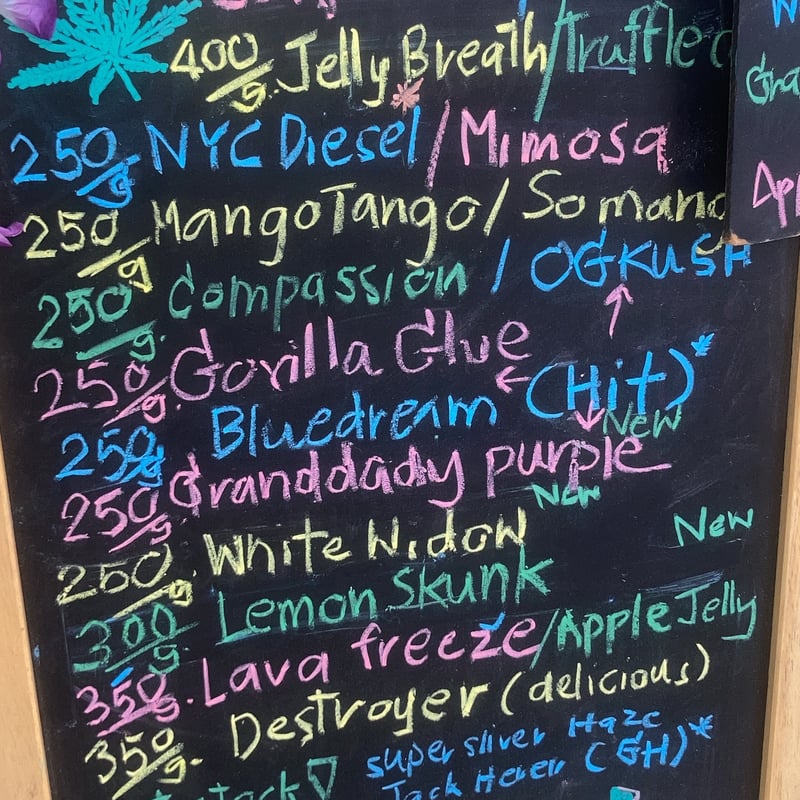 400/g. Jelly Breath/Truffle
250/g NYC Diesel/Mimosa
250/g MangoTango/So mang
250/g. Compassion / OGKUSH
250/g. Gorilla Glue
(Hit)*
250g Bluedream
New
250/g. Granddady purple
New
250/g. White Widow
New
300/g. Lemon Skunk
350/g. Lava freeze/Apple Jelly
350/g. Destroyer (delicious)
super sliver Haze
Jack Herer (GH)*